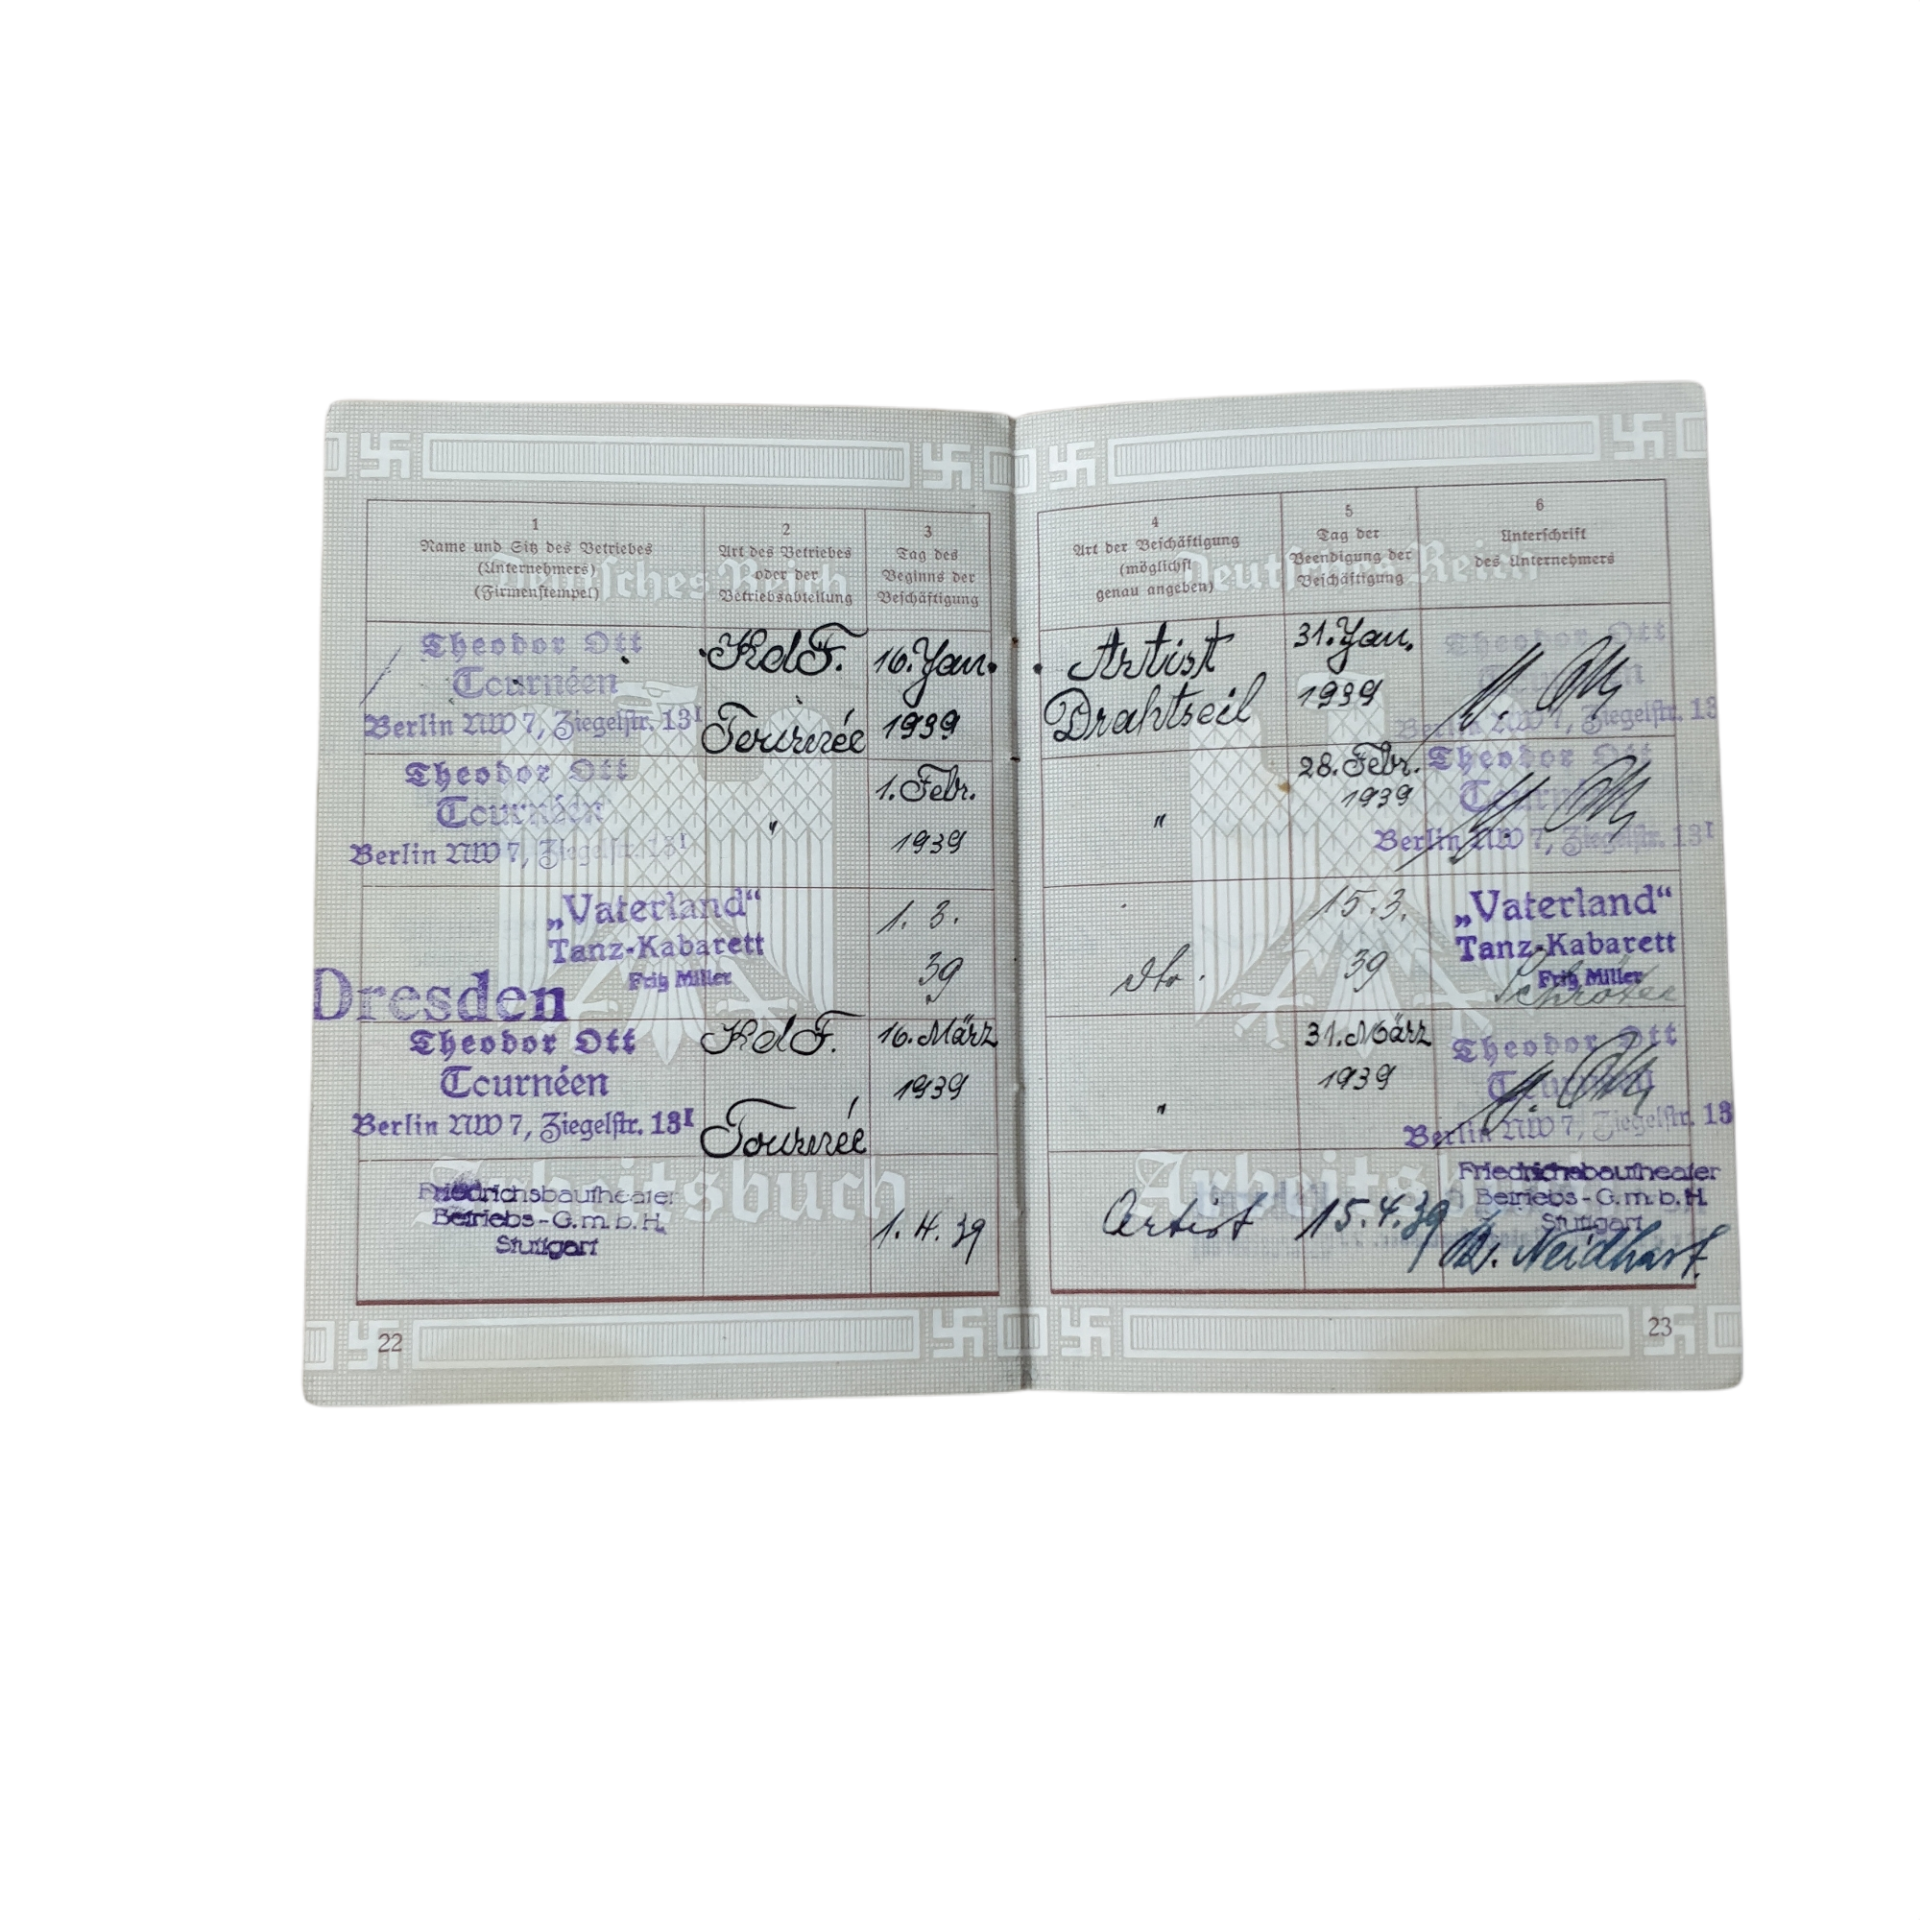 1
Name und Sitz des Betriebes
(Unternehmers)
(Firmenstempel)
2
Art des Betriebes
oder der
Betriebsabteilung
3
Tag des
Beginns der
Beschäftigung
Deutsches Reich
Theodor Ott
Tournéen
Berlin NW 7, Ziegelstr. 13 I
KdF.
Tournée
16. Jan.
1939
Theodor Ott
Tournéen
Berlin NW 7, Ziegelstr. 13 I
"
1. Febr.
1939
„Vaterland“
Tanz-Kabarett
Fritz Miller
Dresden
1. 3.
39
Theodor Ott
Tournéen
Berlin NW 7, Ziegelstr. 13 I
KdF.
Tournée
16. März
1939
Arbeitsbuch
Friedrichsbautheater
Betriebs-G.m.b.H.
Stuttgart
1. 4. 39
22
4
Art der Beschäftigung
(möglichst
genau angeben)
5
Tag der
Beendigung der
Beschäftigung
6
Unterschrift
des Unternehmers
Deutsches Reich
Artist
Drahtseil
31. Jan.
1939
Theodor Ott
Tournéen
Berlin NW 7, Ziegelstr. 13
"
28. Febr.
1939
Theodor Ott
Tournéen
Berlin NW 7, Ziegelstr. 13 I
dto.
15. 3.
39
„Vaterland“
Tanz-Kabarett
Fritz Miller
"
31. März
1939
Theodor Ott
Tournéen
Berlin NW 7, Ziegelstr. 13
Arbeitsbuch
Artist
15. 4. 39
Friedrichsbautheater
Betriebs-G.m.b.H.
Stuttgart
Neidhart
23